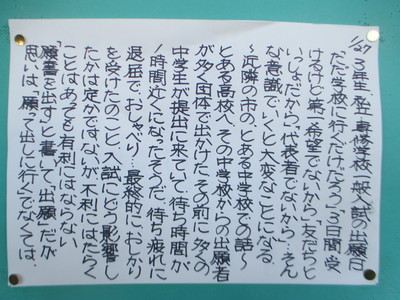 1/27 3年生、私立・専修学校一般入試の出願日
「ただ学校に行くだけだろう」「3日間受
けるけど第一希望でないから」「友だちと
いっしょだから、代表者でないから…」そん
な意識でいくと大変なことになる
～近隣の市の、とある中学校での話～
とある高校へ、その中学校からの出願者
が多く団体で出かけた。その前に多くの
中学生が提出に来ていて、待ち時間が
1時間近くになってそうだ。待ち疲れに
退屈で、おしゃべり…。最終的におしかり
を受けたのこと。入試にどう影響し
たかは定かではないが、不利にはたらく
ことはあっても有利にはならない
「願書を出す」と書いて、「出願」だが
思いは、「願って出」に行くでなくては。